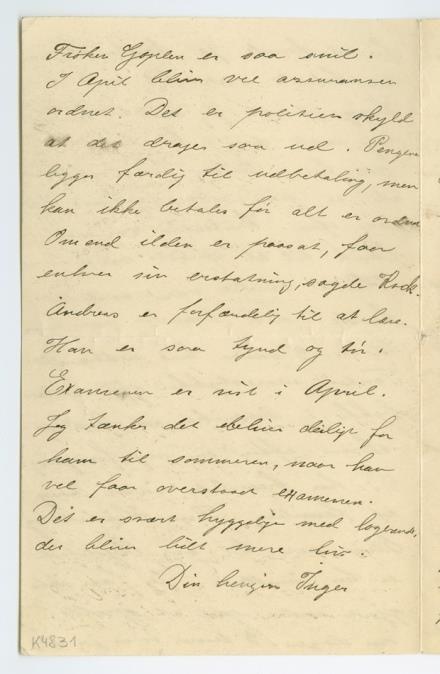 Frøken Goplen er saa snil.
I April bliver vel assuransen
ordnet. Det er politiets skyld
at det drages saa ud. Pengene
ligger færdig til udbetaling, men
kan ikke betales før alt er ordnet
Om end ilden er paasat, faar
enhver sin erstatning, sagde
Andreas er forfærdelig til at læse.
Han er saa tynd og tør.
Examenen er vist i April.
Jeg tænker det bliver deiligt for
ham til sommeren, naar han
vel faar overstaaet examenen.
Det er svært hyggelig med
der bliver lidt mere liv.
Din hengivne Inger
K4831